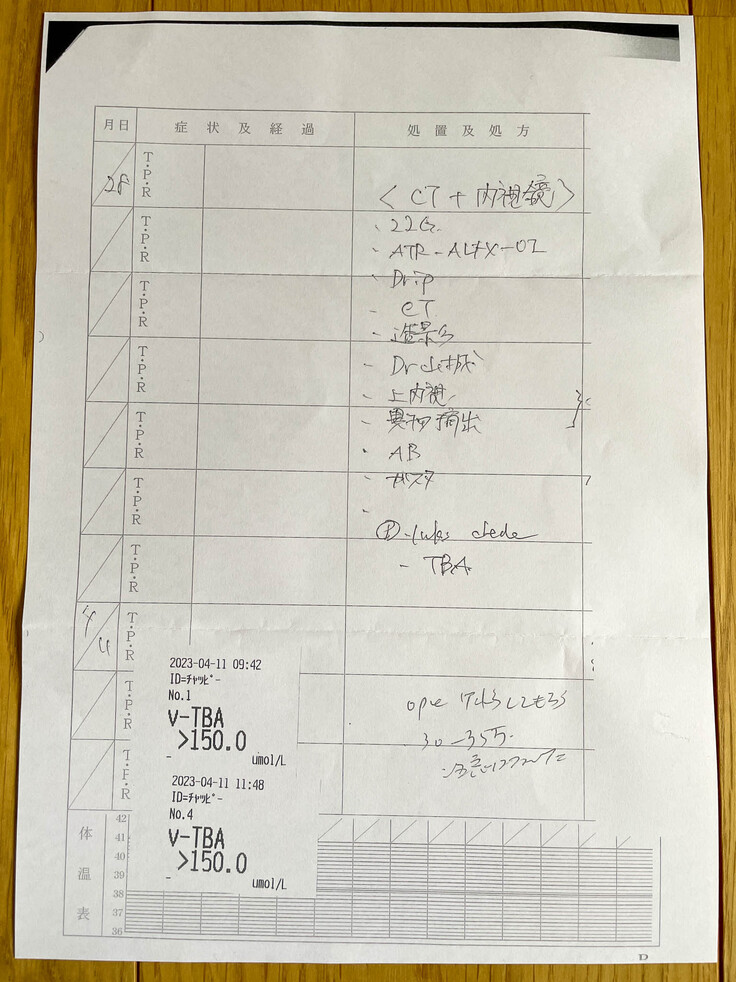 月日 症状及経過 処置及処方
28 T・P・R
〈 CT + 内視鏡 〉
T・P・R
- 22G
- ATR-
- Drip
T・P・R
- CT
- 造影
T・P・R
- Dr
- 上内視
T・P・R
- 異物摘出
- AB
T・P・R
- ガスタ
T・P・R
- TBA
4/11 T・P・R
2023-04-11 09:42
ID=ﾁｬｯﾋﾟｰ
No.1
v-TBA
>150.0
umol/L
T・P・R
ope
30-35万
T・P・R
2023-04-11 11:48
ID=ﾁｬｯﾋﾟｰ
No.4
v-TBA
>150.0
umol/L
体温表
42
41
40
39
38
37
36
D